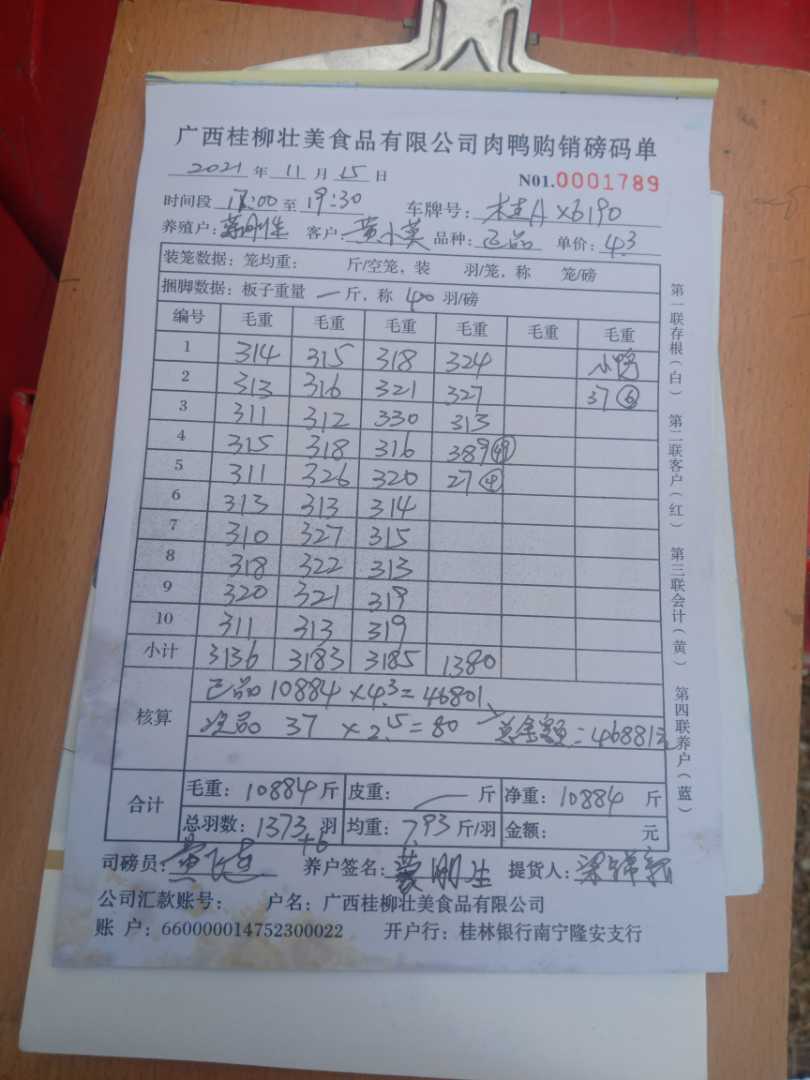 广西桂柳壮美食品有限公司肉鸭购销磅码单
2021 年 11 月 15 日 N01.0001789
时间段 17:00 至 19:30 车牌号: 桂A X6190
养殖户: 客户: 黄小英 品种: 正品 单价: 4.3
装笼数据: 笼均重: 斤/空笼, 装 羽/笼, 称 笼/磅
捆脚数据: 板子重量 一 斤, 称 40 羽/磅
编号 毛重 毛重 毛重 毛重 毛重 毛重
1 314 315 318 324 小鸭
2 313 316 321 327 37 ⑥
3 311 312 330 313
4 315 318 316 389 ㊾
5 311 326 320 27 ④
6 313 313 314
7 310 327 315
8 318 322 313
9 320 321 319
10 311 313 319
小计 3136 3183 3185 1380
核算
正品 10884 ×4.3 = 46801
次品 37 × 2.15 = 80 总金额: 46881元
合计
毛重: 10884 斤 皮重: 一 斤 净重: 10884 斤
总羽数: 1373+6 羽 均重: 7.93 斤/羽 金额: 元
司磅员: 养户签名: 提货人:
公司汇款账号: 户名: 广西桂柳壮美食品有限公司
账 户: 660000014752300022 开户行: 桂林银行南宁隆安支行
第一联存根(白) 第二联客户(红) 第三联会计(黄) 第四联养户(蓝)